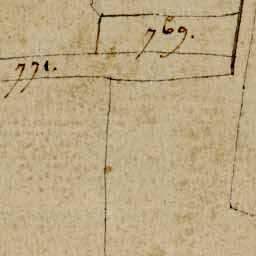 769.
771.